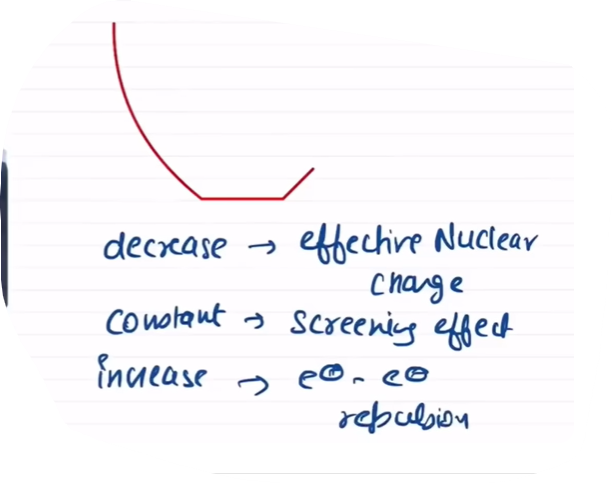 decrease → effective Nuclear
charge
constant → screening effect
increase → e⊖ - e⊖
repulsion